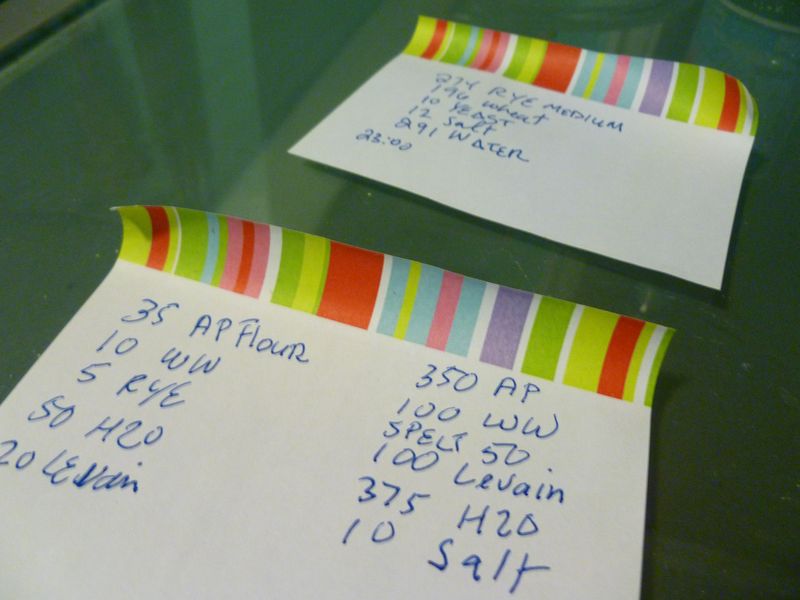 274 RYE MEDIUM
196 wheat
10 YEAST
12 Salt
291 WATER
23:00
35 AP Flour
10 WW
5 RYE
50 H20
20 Levain
350 AP
100 WW
SPELT 50
100 Levain
375 H20
10 Salt